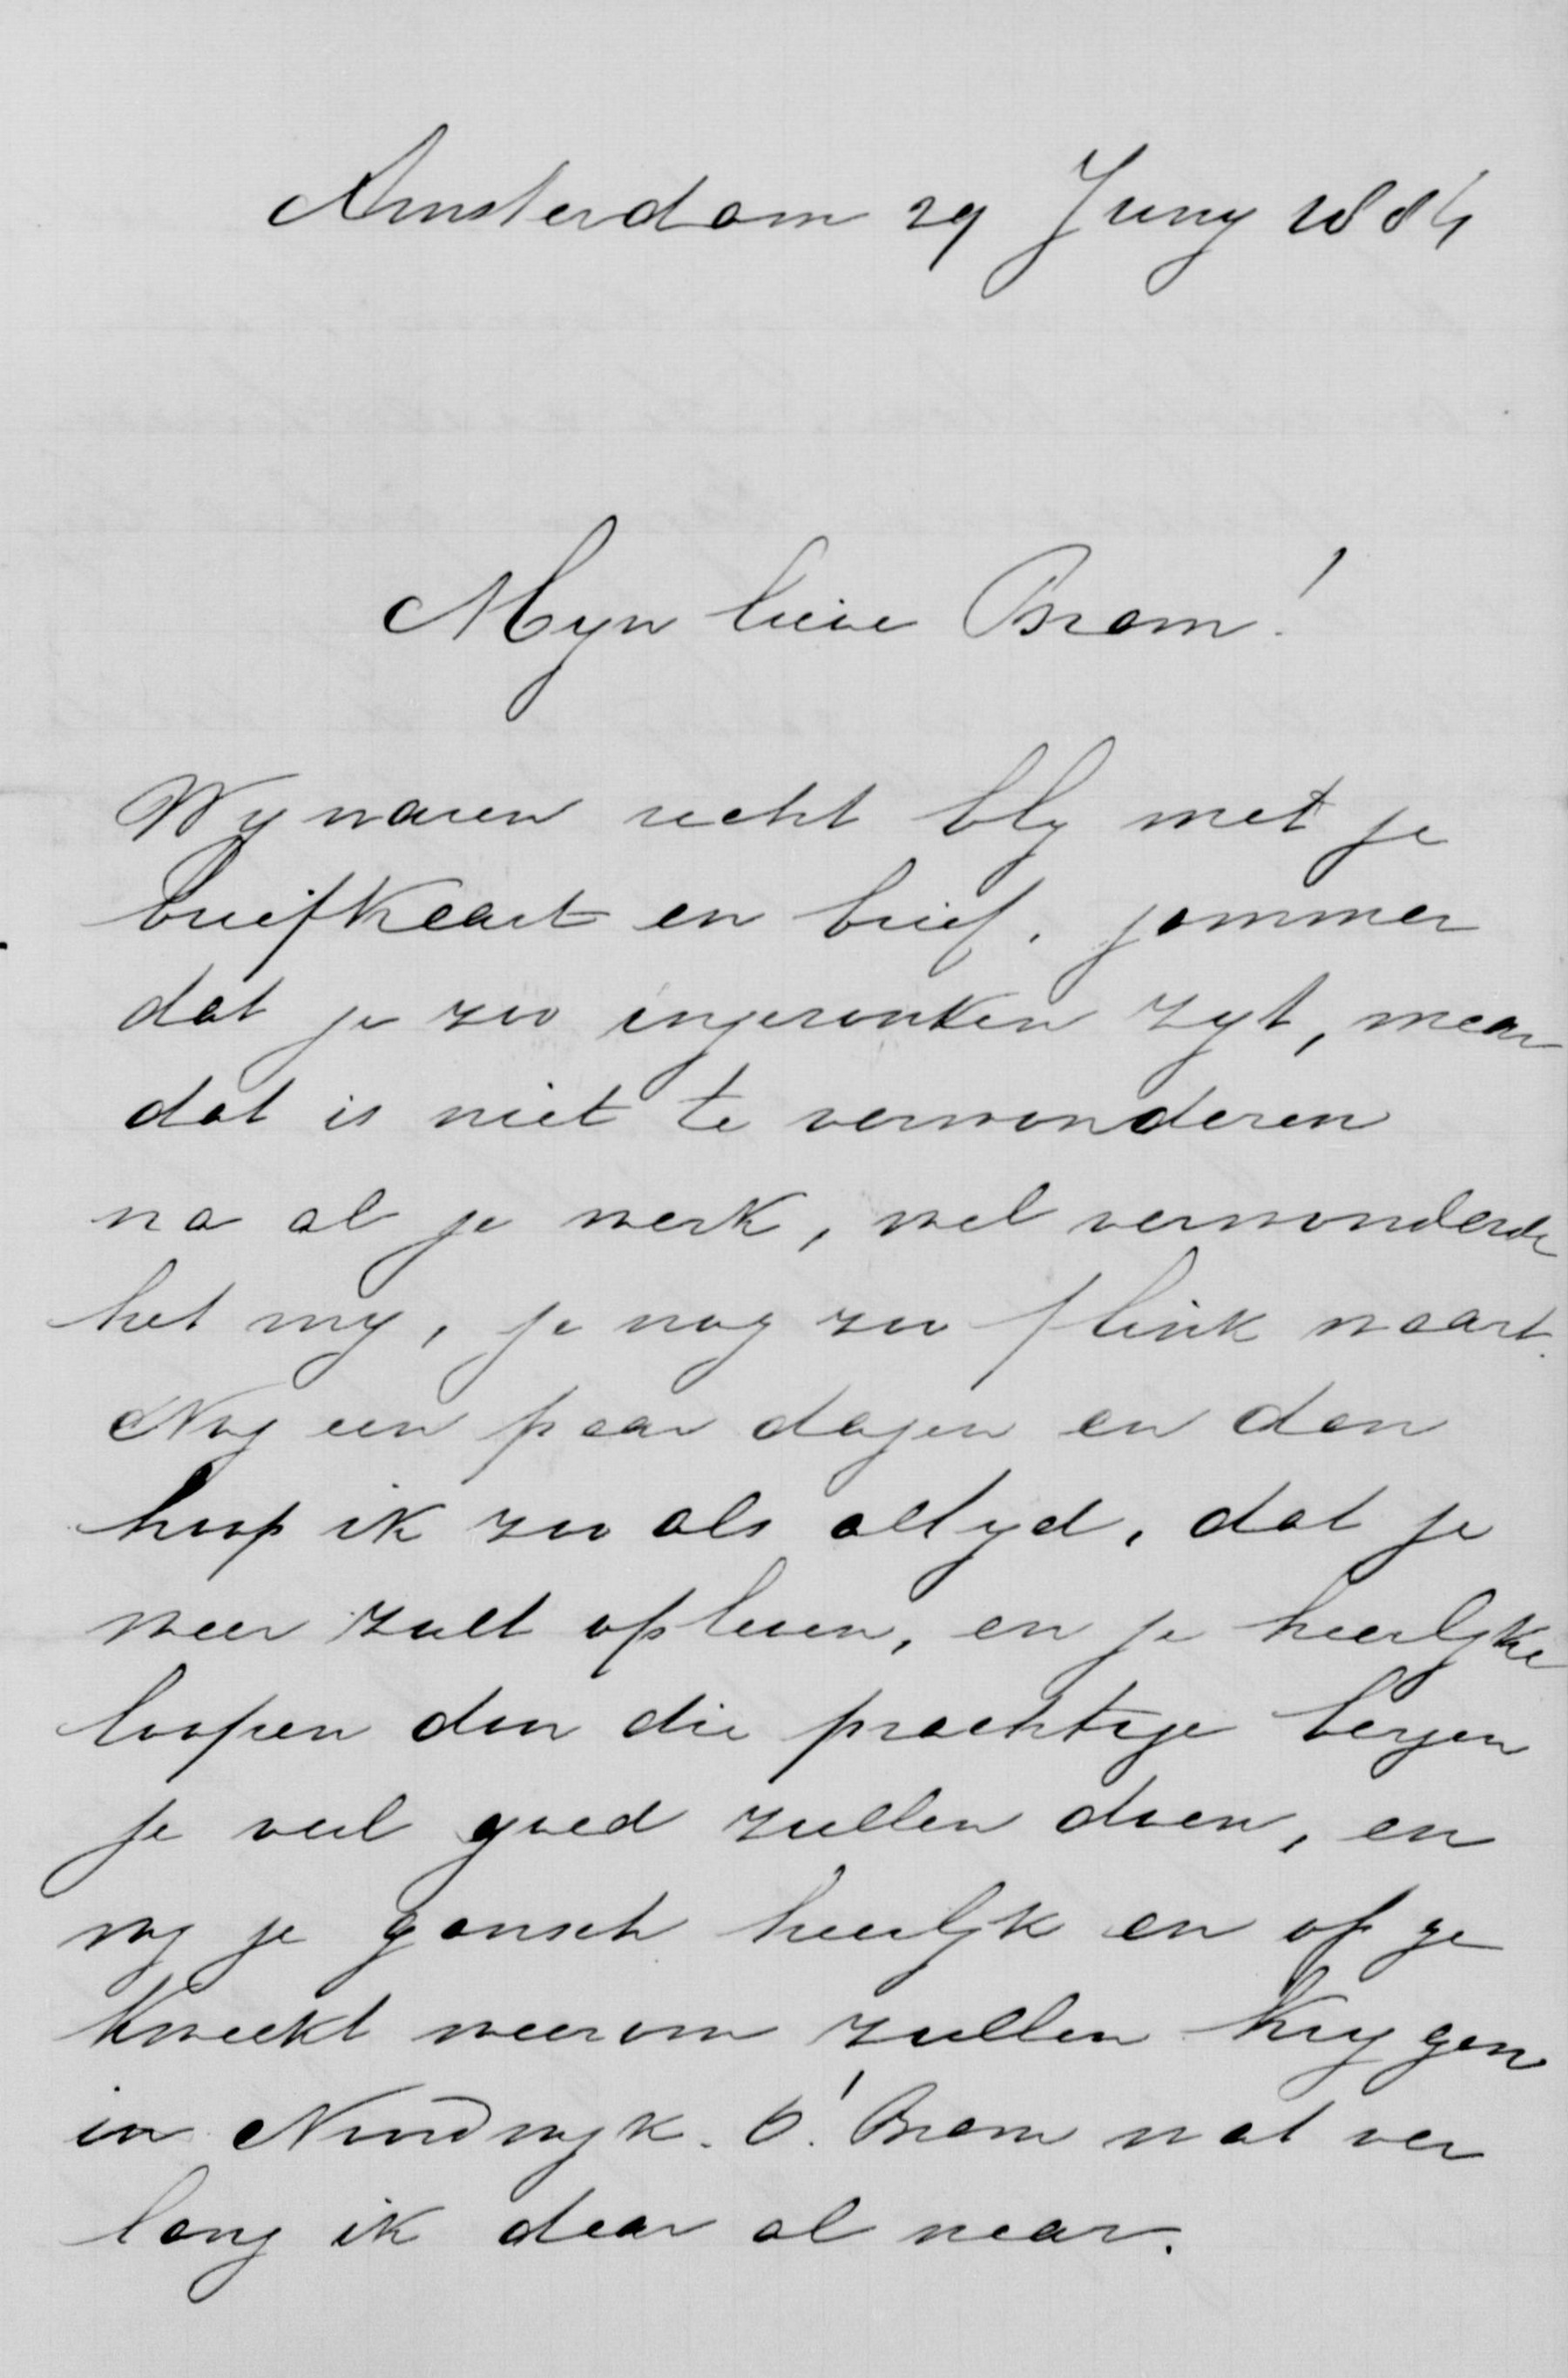 Amsterdam 29 Juny 1884
Myn lieve Bram!
Wy waren recht bly met je
briefkaart en brief, jammer
dat je zoo ingezonken zyt, maar
dat is niet te verwonderen
na al je werk, wel verwonderde
het my, je nog zoo flink waart.
Nog een paar dagen en dan
hoop ik zoo als altyd, dat je
weer zult opleven, en je heerlyke
loopen door die prachtige bergen
je veel goed zullen doen, en
wy je gansch heerlyk en op ge
kweekt weerom zullen krygen
in Noordwyk. O! Bram wat ver
lang ik daar al naar.